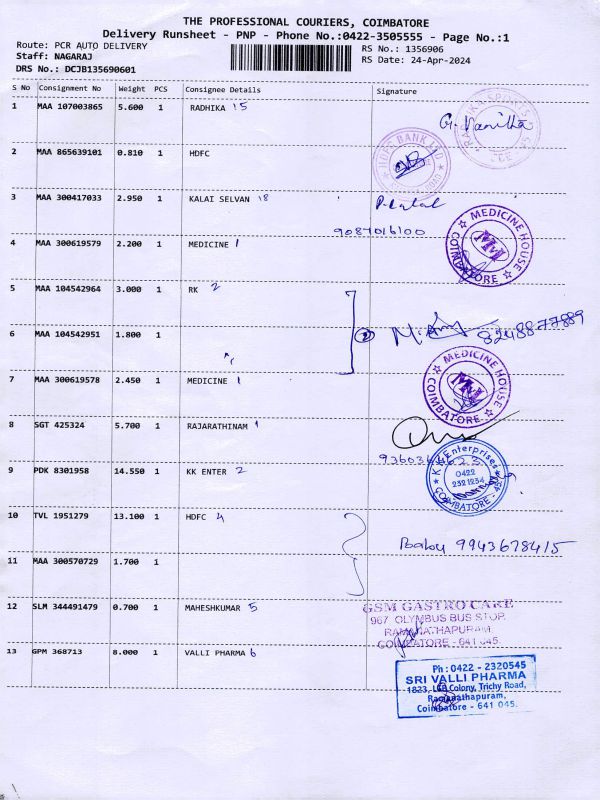 THE PROFESSIONAL COURIERS, COIMBATORE
Delivery Runsheet - PNP - Phone No.:0422-3505555 - Page No.:1
Route: PCR AUTO DELIVERY
Staff: NAGARAJ
DRS No.: DCJB135690601
RS No.: 1356906
RS Date: 24-Apr-2024
S No Consignment No Weight PCS Consignee Details Signature
1 MAA 107003865 5.600 1 RADHIKA 15
G. Vanitha
2 MAA 865639101 0.810 1 HDFC
HDFC BANK LTD
3 MAA 300417033 2.950 1 KALAI SELVAN 18
9087016100
4 MAA 300619579 2.200 1 MEDICINE 1
MEDICINE HOUSE
MM
COIMBATORE
5 MAA 104542964 3.000 1 RK 2
6 MAA 104542951 1.800 1
2
8248877889
7 MAA 300619578 2.450 1 MEDICINE 1
MEDICINE HOUSE
MM
COIMBATORE
8 SGT 425324 5.700 1 RAJARATHINAM 1
9 PDK 8301958 14.550 1 KK ENTER 2
K K Enterprises
0422
2321234
COIMBATORE
10 TVL 1951279 13.100 1 HDFC 4
Baby 9943678415
11 MAA 300570729 1.700 1
12 SLM 344491479 0.700 1 MAHESHKUMAR 5
GSM GASTRO CARE
967 OLYMBUS BUS STOP,
RAMANATHAPURAM,
COIMBATORE - 641 045.
13 GPM 368713 8.000 1 VALLI PHARMA 6
Ph : 0422 - 2320545
SRI VALLI PHARMA
1823, LGB Colony, Trichy Road,
Ramanathapuram,
Coimbatore - 641 045.